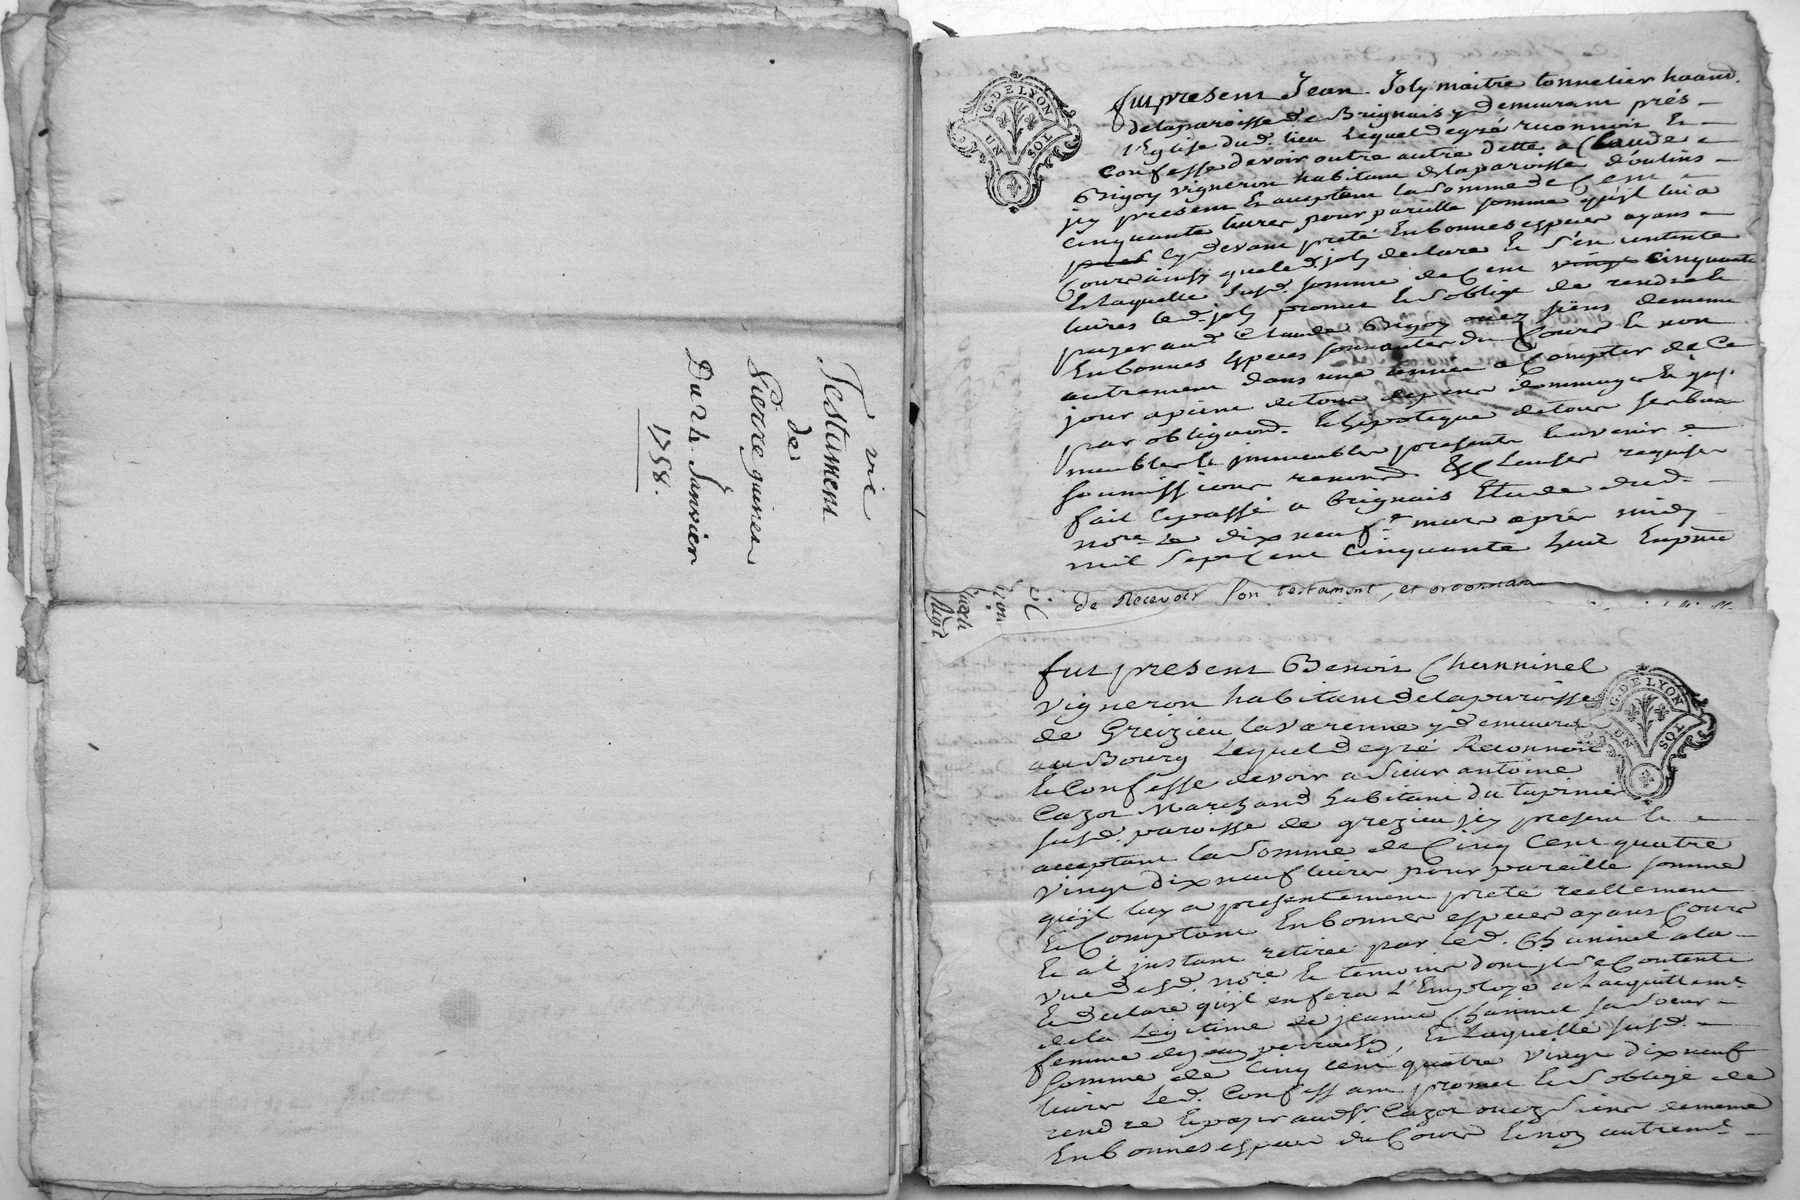 vic
Testament
de
Pierre guines
Du 24 Janvier
1758.
G. DE LYON
UN SOL
fut present Jean Joly maitre tonnelier haant.
delaparoisse de Brignais y demeurant prés
l'Eglise dud. lieu Lequel degré reconnoit Et
Confesse devoir outre autre dette a Claude
Bigoy vigneron habitant delaparoisse d'oulins
jcy present Et acceptant la Somme de Cent
cinquante livres pour pareille somme qu'jl lui a
cy devant preté En bonnes especes ayans
Cours ainsy que led. joly declare Et s'en contente
Et Laquelle susd. somme de Cent vingt cinquante
livres led. joly promet Et s'oblige de rendre Et
payer aud. Claude Bigoy ou ez siens de meme
En bonnes Especes sonnantes du Cours Et non
autrement dans une année a Compter de Ce
jour a peine de tous depens dommages Et
par obligaon. Et hipoteque de tous ses biens
meubles Et jmmeubles presents Et avenir
soumissions renond. &c Clauses requises
fait Et passé a Brignais Etude dud.
nore. Le dix neuf mars aprés midy
mil Sept Cent cinquante huit En pnce
vic
Lyon
de Recevoir son testament, et ordonnan
fut present Benoit Channinel
vigneron habitant delaparoisse
de Greizieu Lavarenne y demeurant
au Bourg Lequel degré Reconnoit
Et Confesse devoir a Sieur antoine
Cazot Marchand habitant du tupinier
susd. paroisse de grezieu jcy present Et
acceptant la Somme de Cinq Cent quatre
vingt dix neuf livres pour pareille somme
qu'jl luy a presentement preté reellement
Et Comptant En bonnes especes ayans Cours
Et a l'jnstant retirée par led. Chaninel a la
vue desd. nore. Et temoins dont jl se Contente
Et declare qu'jl en fera L'Employe a Lacquittemt.
de la Legitime de jeanne Chaninel sa Soeur
femme de jean perrachon, Et Laquelle susd.
Somme de Cinq cent quatre vingt dix neuf
livres Led. Confessant promet Et s'oblige de
rendre Et payer aud. Sr. Cazot ou ez Siens de meme
En bonnes especes du Cours Et non autremt.
G. DE LYON
UN SOL